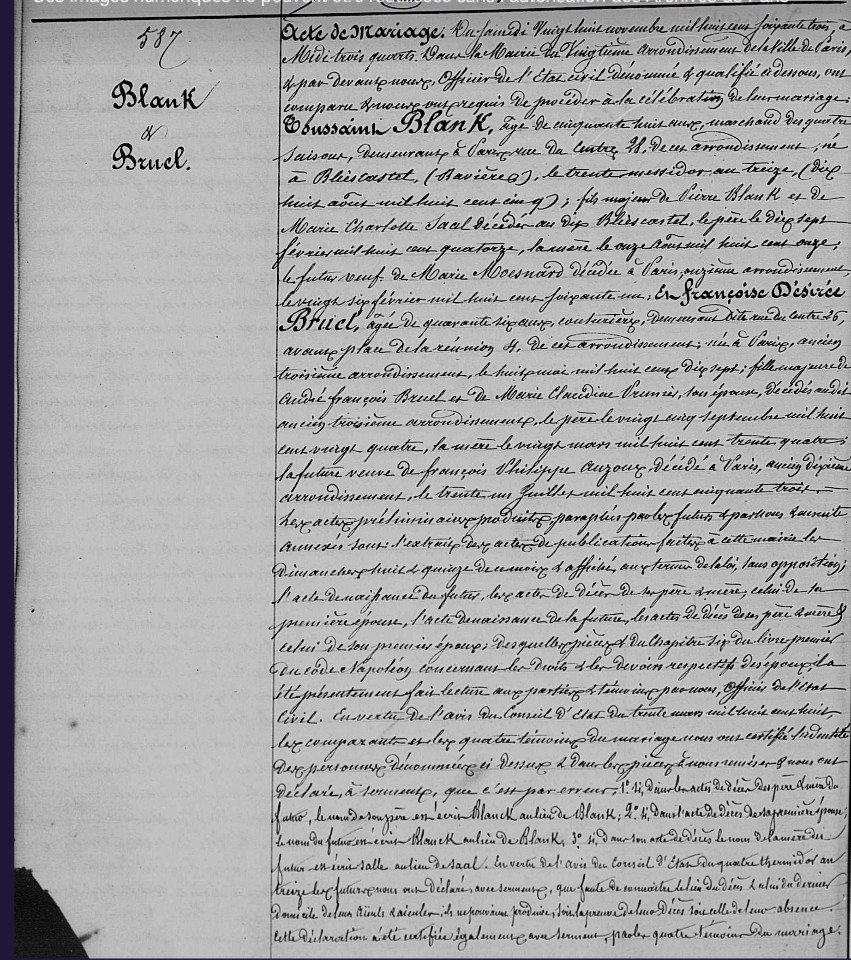 Ces images numériques ne peuvent être réutilisées sans l'autorisation des Archives de Paris
587
Blank
&
Bruel.
Acte de Mariage. Du samedi Vingt huit novembre mil huit cent soixante trois, à
Midi trois quarts. Dans la Mairie du Vingtième arrondissement de la Ville de Paris,
& par devant nous, Officier de l'Etat civil dénommé & qualifié ci dessous, ont
comparu & nous ont requis de procéder à la célébration de leur mariage:
Toussaint Blank, âgé de cinquante huit ans, marchand des quatre
saisons, demeurant à Paris rue du Centre 28, de cet arrondissement, né
à Bliescastel, (Bavière), le trente messidor an treize, (dix
huit août mil huit cent cinq); fils majeur de Pierre Blank et de
Marie Charlotte Saal décédés au dit Bliescastel, le père le dix sept
février mil huit cent quatorze, la mère le onze août mil huit cent onze;
le futur veuf de Marie Moesnard décédée à Paris, onzième arrondissement,
le vingt six février mil huit cent soixante un; Et françoise Désirée
Bruel, âgée de quarante six ans, couturière, demeurant dite rue du Centre 26,
avant place de la réunion 4, de cet arrondissement; née à Paris, ancien
troisième arrondissement, le huit mai mil huit cent dix sept; fille majeure de
André françois Bruel et de Marie Claudine Prunier, son épouse, décédés au dit
ancien troisième arrondissement, le père le vingt cinq septembre mil huit
cent vingt quatre, la mère le vingt mars mil huit cent trente quatre;
la future veuve de françois Philippe Auzoux, décédé à Paris, ancien dixième
arrondissement, le trente un Juillet mil huit cent cinquante trois.
Les actes préliminaires produits, paraphés par les futurs & par nous & ensuite
annexés sont: l'extrait des actes de publication faites à cette mairie les
Dimanches huit & quinze de ce mois & affichés aux termes de la loi, sans opposition;
l'acte de naissance du futur, les actes de décès de ses père & mère, celui de sa
première épouse, l'acte de naissance de la future, les actes de décès de ses père & mère &
celui de son premier époux; desquelles pièces & du Chapitre six du livre premier
du code Napoléon concernant les droits & les devoirs respectifs des époux, il a
été présentement fait lecture aux parties & témoins par nous, Officier de l'Etat
Civil. En vertu de l'avis du Conseil d'Etat du trente mars mil huit cent huit,
les comparants et les quatre témoins du mariage nous ont certifié l'identité
des personnes dénommées ci dessus & dans les pièces à nous remises & nous ont
déclaré, à serment, que c'est par erreur, 1° si, dans les actes de décès des père & mère du
futur, le nom de son père est écrit Blanck au lieu de Blank; 2° si, dans l'acte de décès de sa première épouse,
le nom du futur est écrit Blanck au lieu de Blank, 3° si, dans son acte de décès le nom de la mère du
futur est écrit Salle au lieu de Saal. En vertu de l'avis du Conseil d'Etat du quatre thermidor an
treize les futurs nous ont déclaré, avec serment, que faute de connaître le lieu du décès & celui du dernier
domicile de leurs aïeuls & aïeules, ils ne pouvaient produire, soit la preuve de leur Décès soit celle de leur absence.
Cette déclaration a été certifiée également avec serment, par les quatre Témoins du mariage.